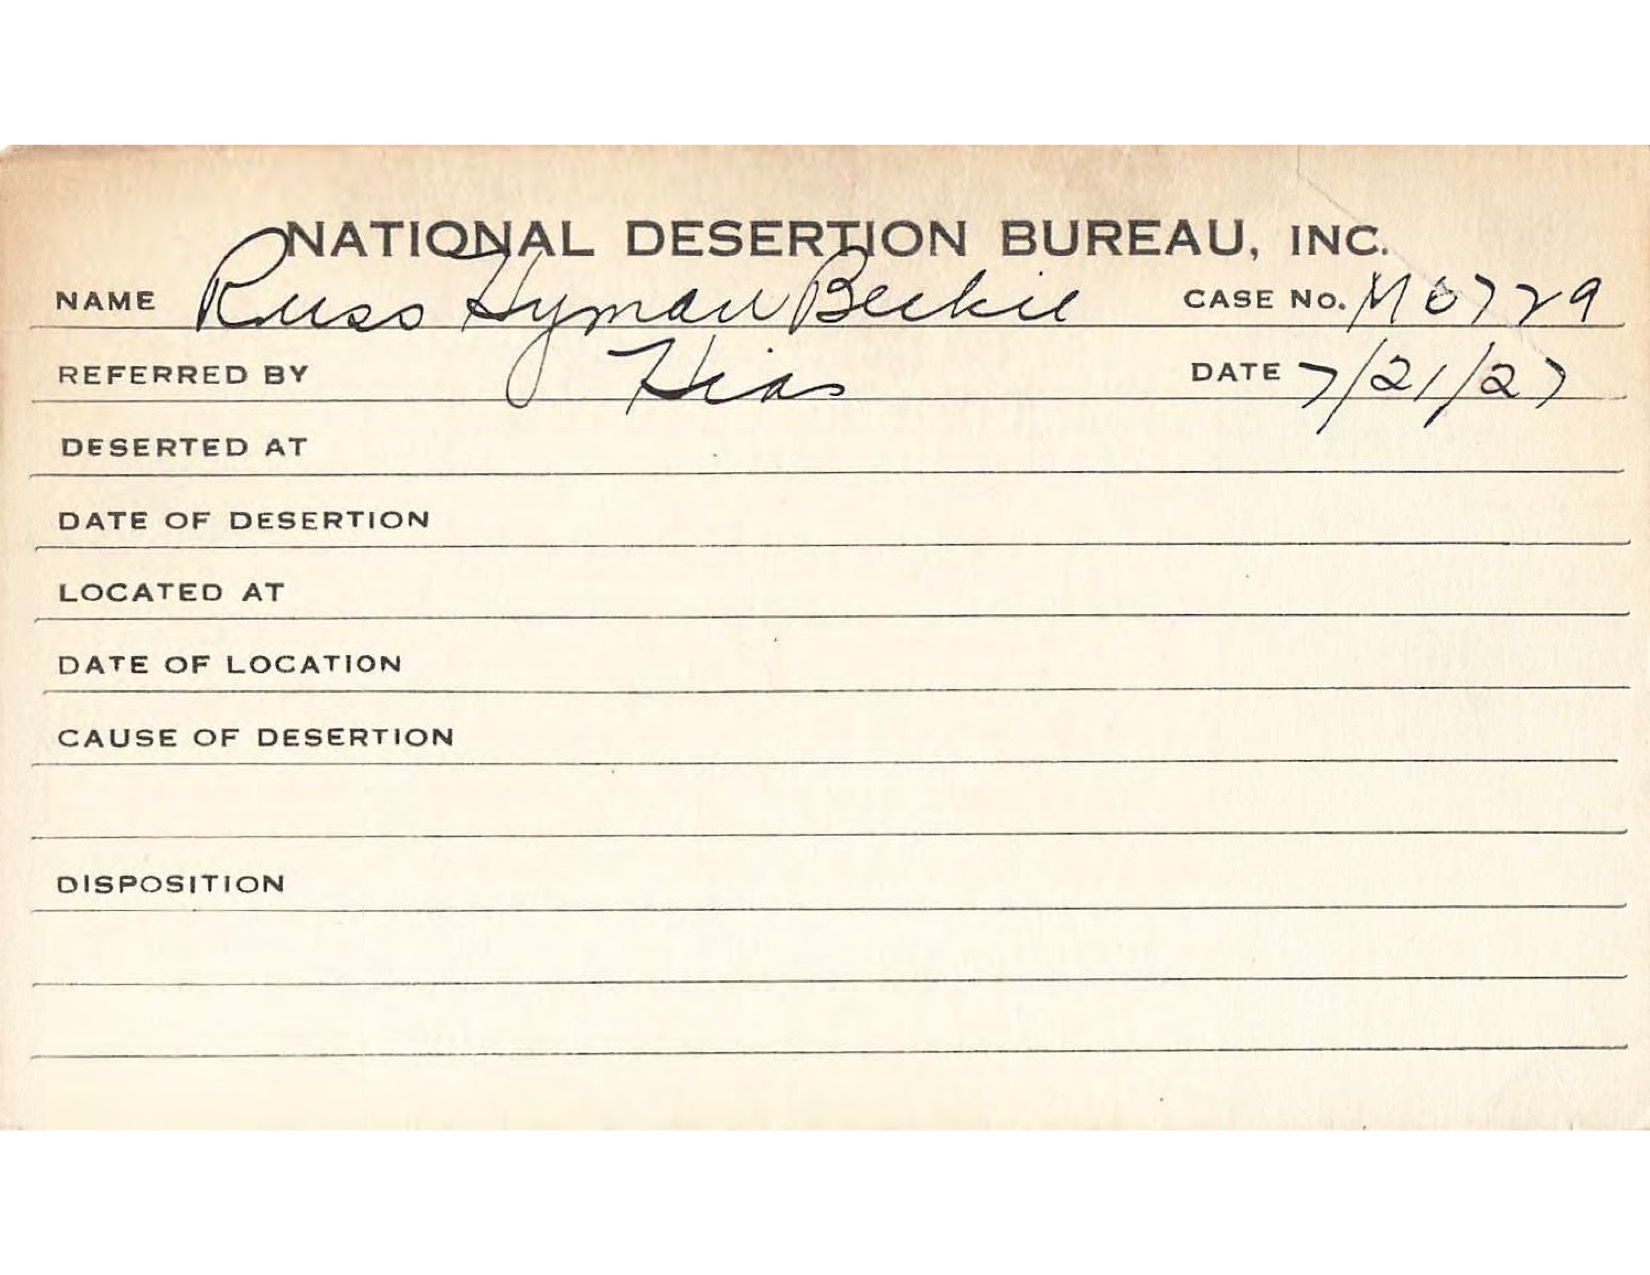 NATIONAL DESERTION BUREAU, INC.
NAME Russ Hyman Beckie CASE No. M6729
REFERRED BY Hias DATE 7/21/27
DESERTED AT
DATE OF DESERTION
LOCATED AT
DATE OF LOCATION
CAUSE OF DESERTION
DISPOSITION